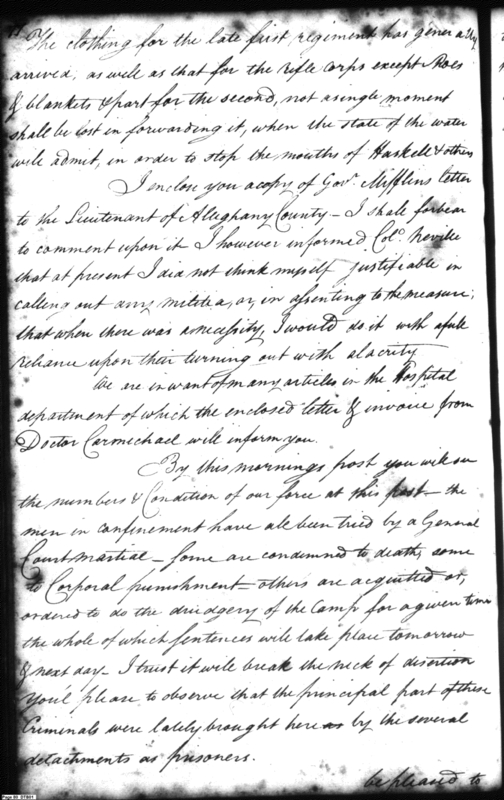 The clothing for the late first regiment has generally
arrived, as well as that for the Rifle Corps except Shoes
& blankets & part for the second, not a single moment
shall be lost in forwarding it, when the state of the water
will admit, in order to stop the mouths of Haskell & others
I enclose you a copy of Govr. Mifflins letter
to the Lieutenant of Alleghany County – I shall forbear
to comment upon it I however informed Colo. Neville
that at present I did not think myself justifiable in
calling out any militia, or, in assenting to the measure;
that when there was a necessity, I would do it with a full
reliance upon their turning out with alacrity
We are in want of many articles in the Hospital
department of which the enclosed letter & invoice from
Doctor Carmichael will inform you.
By this mornings post you will see
the numbers & Condition of our force at this post – the
men in confinement have all been tried by a General
Court martial – some are condemned to death, some
to Corporal punishment – others are acquitted or,
ordered to do the drudgery of the Camp for a given time
the whole of which sentences will take place tomorrow
& next day – I trust it will break the neck of disertion
You'l please to observe that the principal part of these
Criminals were lately brought here as by the several
detachments as prisoners.
be pleased to